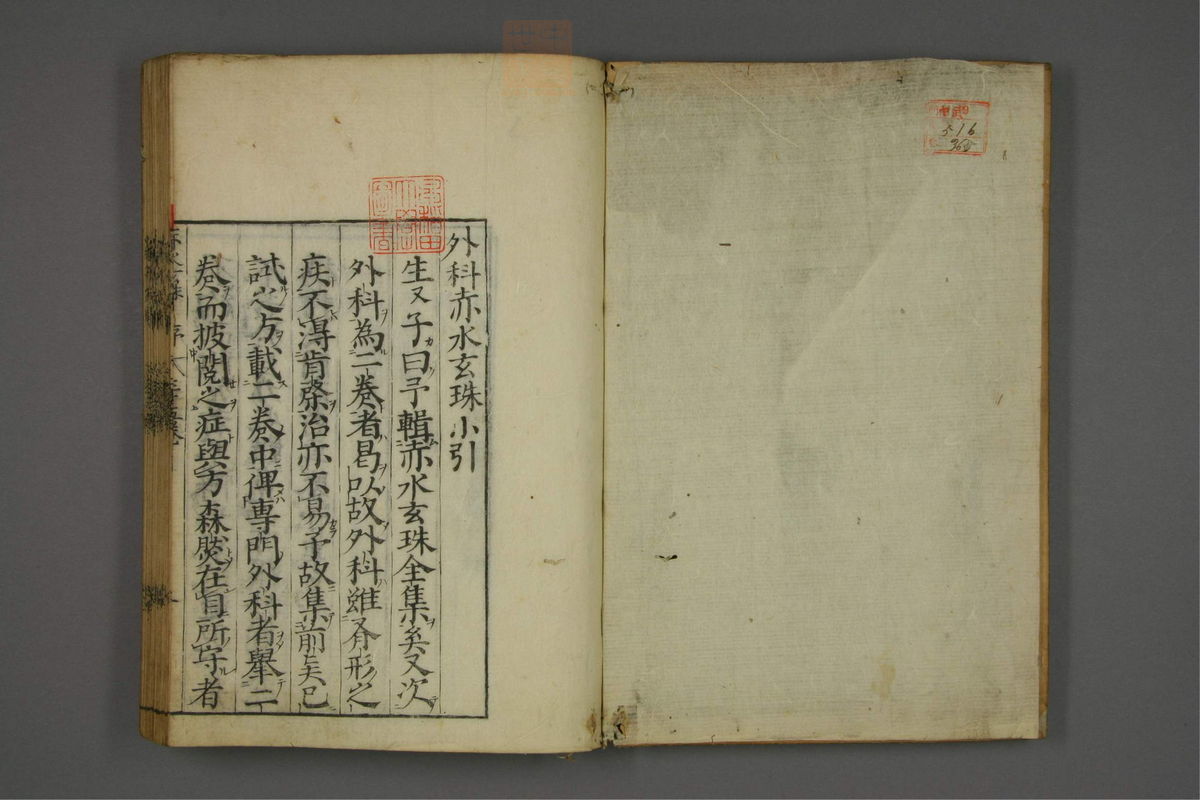 外科赤水玄珠小引
生生子曰予輯赤水玄珠全集矣又次
外科為二巻者曷以故外科雖有形之
疾不淂肯綮治亦不易予故集前矣已
試之方載二巻中俾專門外科者舉二
巻而披閲之症與方森然在目所守者
早稲田
大學
圖書
516
368